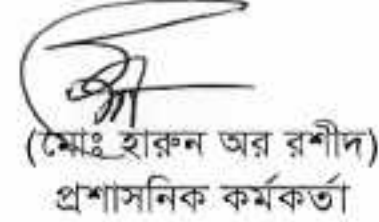 (মোঃ হারুন অর রশীদ)
প্রশাসনিক কর্মকর্তা